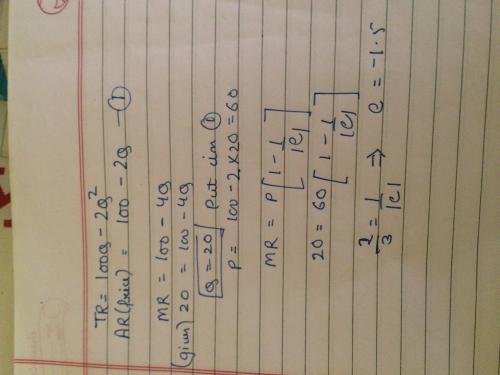 TR = 100Q - 2Q²
AR (price) = 100 - 2Q — ①
MR = 100 - 4Q
(given) 20 = 100 - 4Q
Q = 20 Put in ①
P = 100 - 2 × 20 = 60
MR = P [1 - 1/|e|]
20 = 60 [1 - 1/|e|]
2/3 = 1/|e| ⇒ e = -1.5